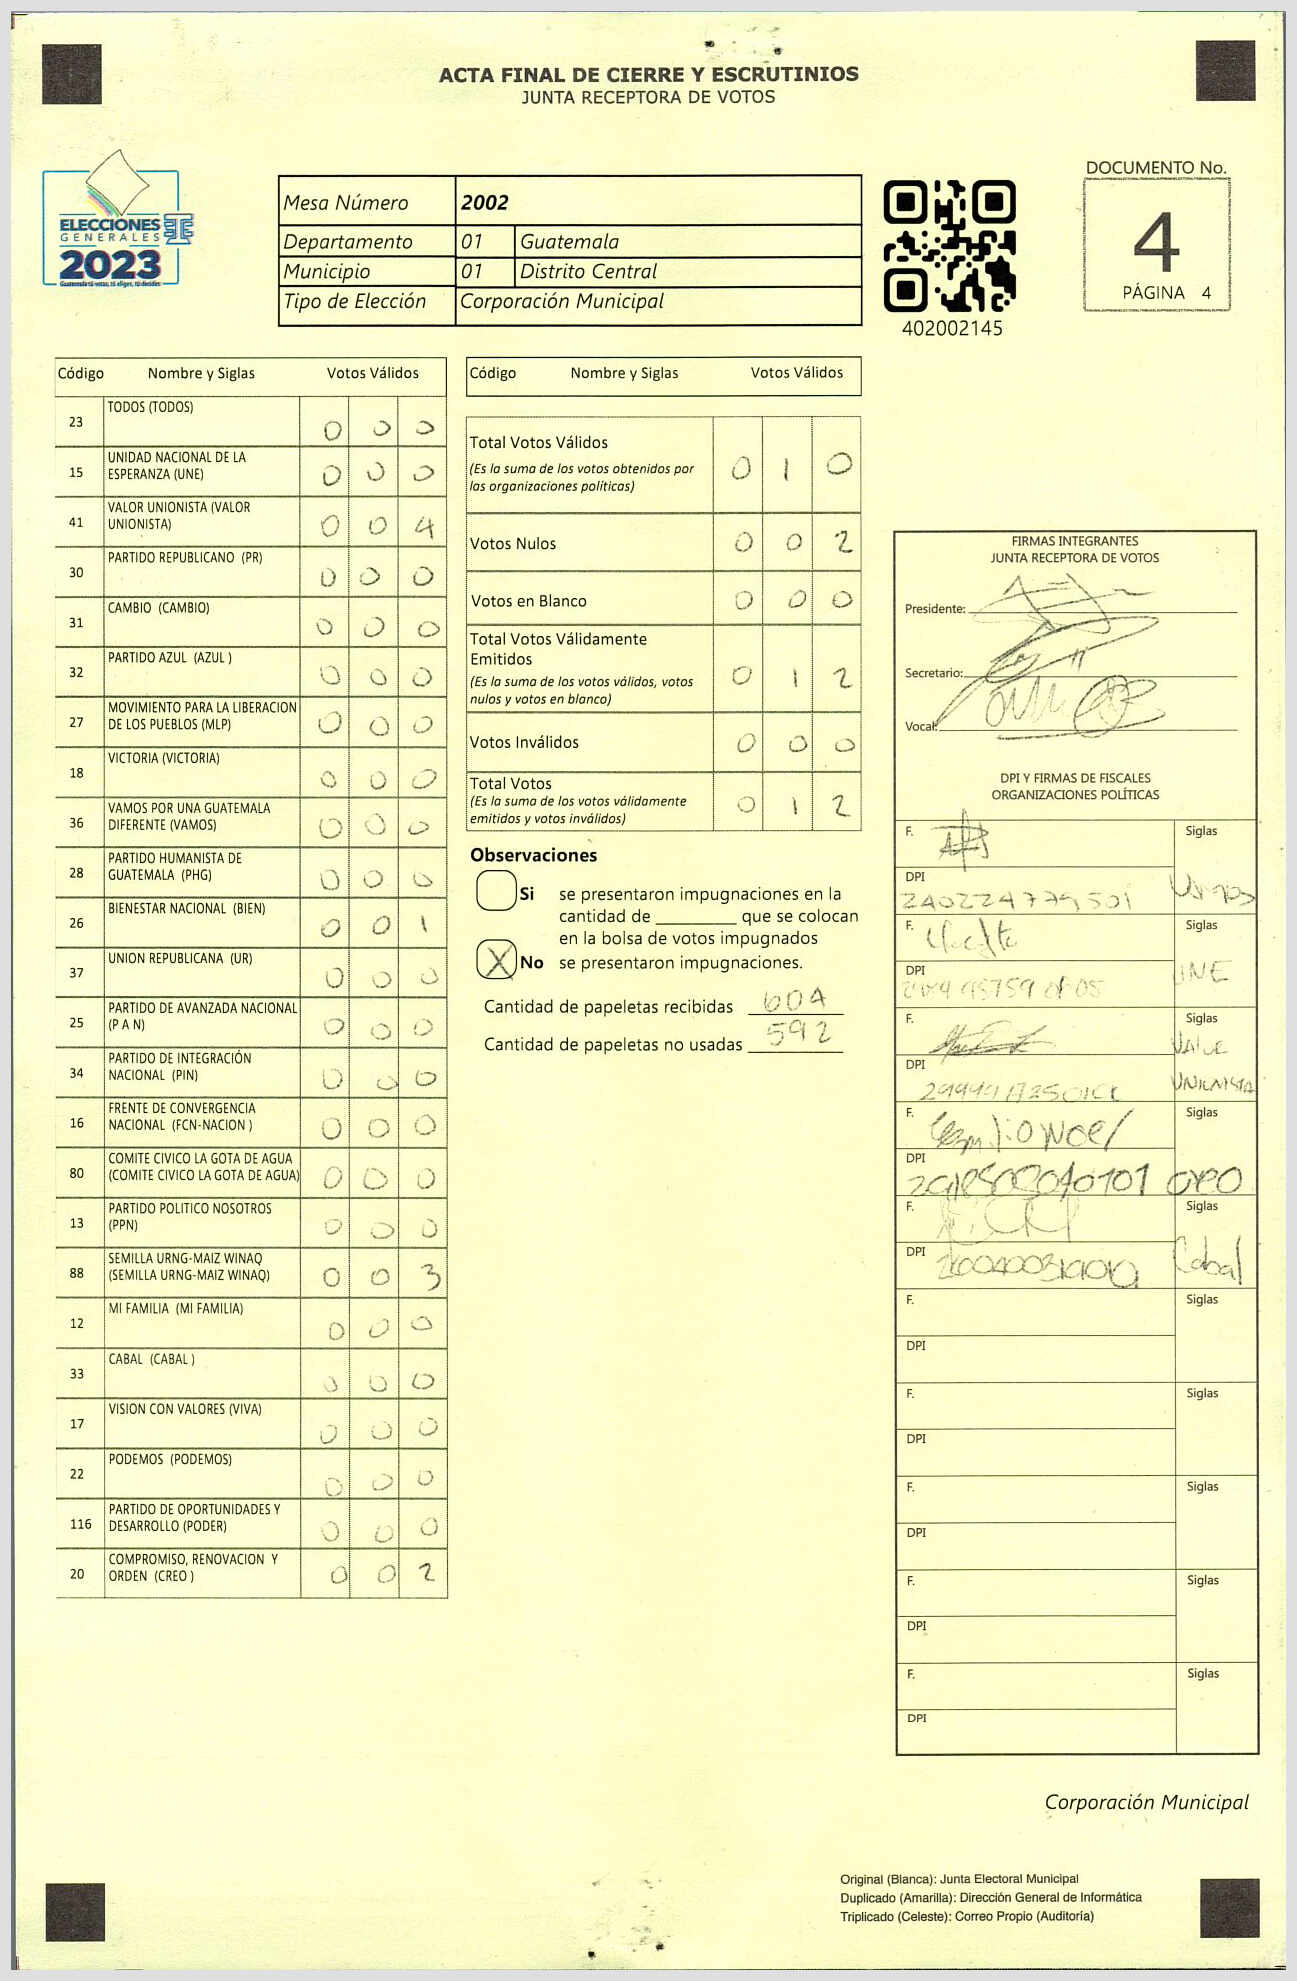 ACTA FINAL DE CIERRE Y ESCRUTINIOS
JUNTA RECEPTORA DE VOTOS
ELECCIONES
GENERALES
2023
Guatemala tú votas, tú eliges, tú decides
Mesa Número 2002
Departamento 01 Guatemala
Municipio 01 Distrito Central
Tipo de Elección Corporación Municipal
402002145
DOCUMENTO No.
4
PÁGINA 4
Código Nombre y Siglas Votos Válidos
23 TODOS (TODOS) 0 0 0
15 UNIDAD NACIONAL DE LA
ESPERANZA (UNE) 0 0 0
41 VALOR UNIONISTA (VALOR
UNIONISTA) 0 0 4
30 PARTIDO REPUBLICANO (PR) 0 0 0
31 CAMBIO (CAMBIO) 0 0 0
32 PARTIDO AZUL (AZUL ) 0 0 0
27 MOVIMIENTO PARA LA LIBERACION
DE LOS PUEBLOS (MLP) 0 0 0
18 VICTORIA (VICTORIA) 0 0 0
36 VAMOS POR UNA GUATEMALA
DIFERENTE (VAMOS) 0 0 0
28 PARTIDO HUMANISTA DE
GUATEMALA (PHG) 0 0 0
26 BIENESTAR NACIONAL (BIEN) 0 0 1
37 UNION REPUBLICANA (UR) 0 0 0
25 PARTIDO DE AVANZADA NACIONAL
(P A N) 0 0 0
34 PARTIDO DE INTEGRACIÓN
NACIONAL (PIN) 0 0 0
16 FRENTE DE CONVERGENCIA
NACIONAL (FCN-NACION ) 0 0 0
80 COMITE CIVICO LA GOTA DE AGUA
(COMITE CIVICO LA GOTA DE AGUA) 0 0 0
13 PARTIDO POLITICO NOSOTROS
(PPN) 0 0 0
88 SEMILLA URNG-MAIZ WINAQ
(SEMILLA URNG-MAIZ WINAQ) 0 0 3
12 MI FAMILIA (MI FAMILIA) 0 0 0
33 CABAL (CABAL ) 0 0 0
17 VISION CON VALORES (VIVA) 0 0 0
22 PODEMOS (PODEMOS) 0 0 0
116 PARTIDO DE OPORTUNIDADES Y
DESARROLLO (PODER) 0 0 0
20 COMPROMISO, RENOVACION Y
ORDEN (CREO ) 0 0 2
Código Nombre y Siglas Votos Válidos
Total Votos Válidos 0 1 0
(Es la suma de los votos obtenidos por
las organizaciones políticas)
Votos Nulos 0 0 2
Votos en Blanco 0 0 0
Total Votos Válidamente
Emitidos 0 1 2
(Es la suma de los votos válidos, votos
nulos y votos en blanco)
Votos Inválidos 0 0 0
Total Votos 0 1 2
(Es la suma de los votos válidamente
emitidos y votos inválidos)
Observaciones
Si se presentaron impugnaciones en la
cantidad de que se colocan
en la bolsa de votos impugnados
X No se presentaron impugnaciones.
Cantidad de papeletas recibidas 604
Cantidad de papeletas no usadas 592
FIRMAS INTEGRANTES
JUNTA RECEPTORA DE VOTOS
Presidente:
Secretario:
Vocal:
DPI Y FIRMAS DE FISCALES
ORGANIZACIONES POLÍTICAS
F. Siglas
DPI
F. Siglas
DPI UNE
F. Siglas
DPI VALOR UNIONISTA
F. Siglas
DPI
F. Siglas
DPI Cabal
F. Siglas
DPI
F. Siglas
DPI
F. Siglas
DPI
F. Siglas
DPI
F. Siglas
DPI
Corporación Municipal
Original (Blanca): Junta Electoral Municipal
Duplicado (Amarilla): Dirección General de Informática
Triplicado (Celeste): Correo Propio (Auditoría)